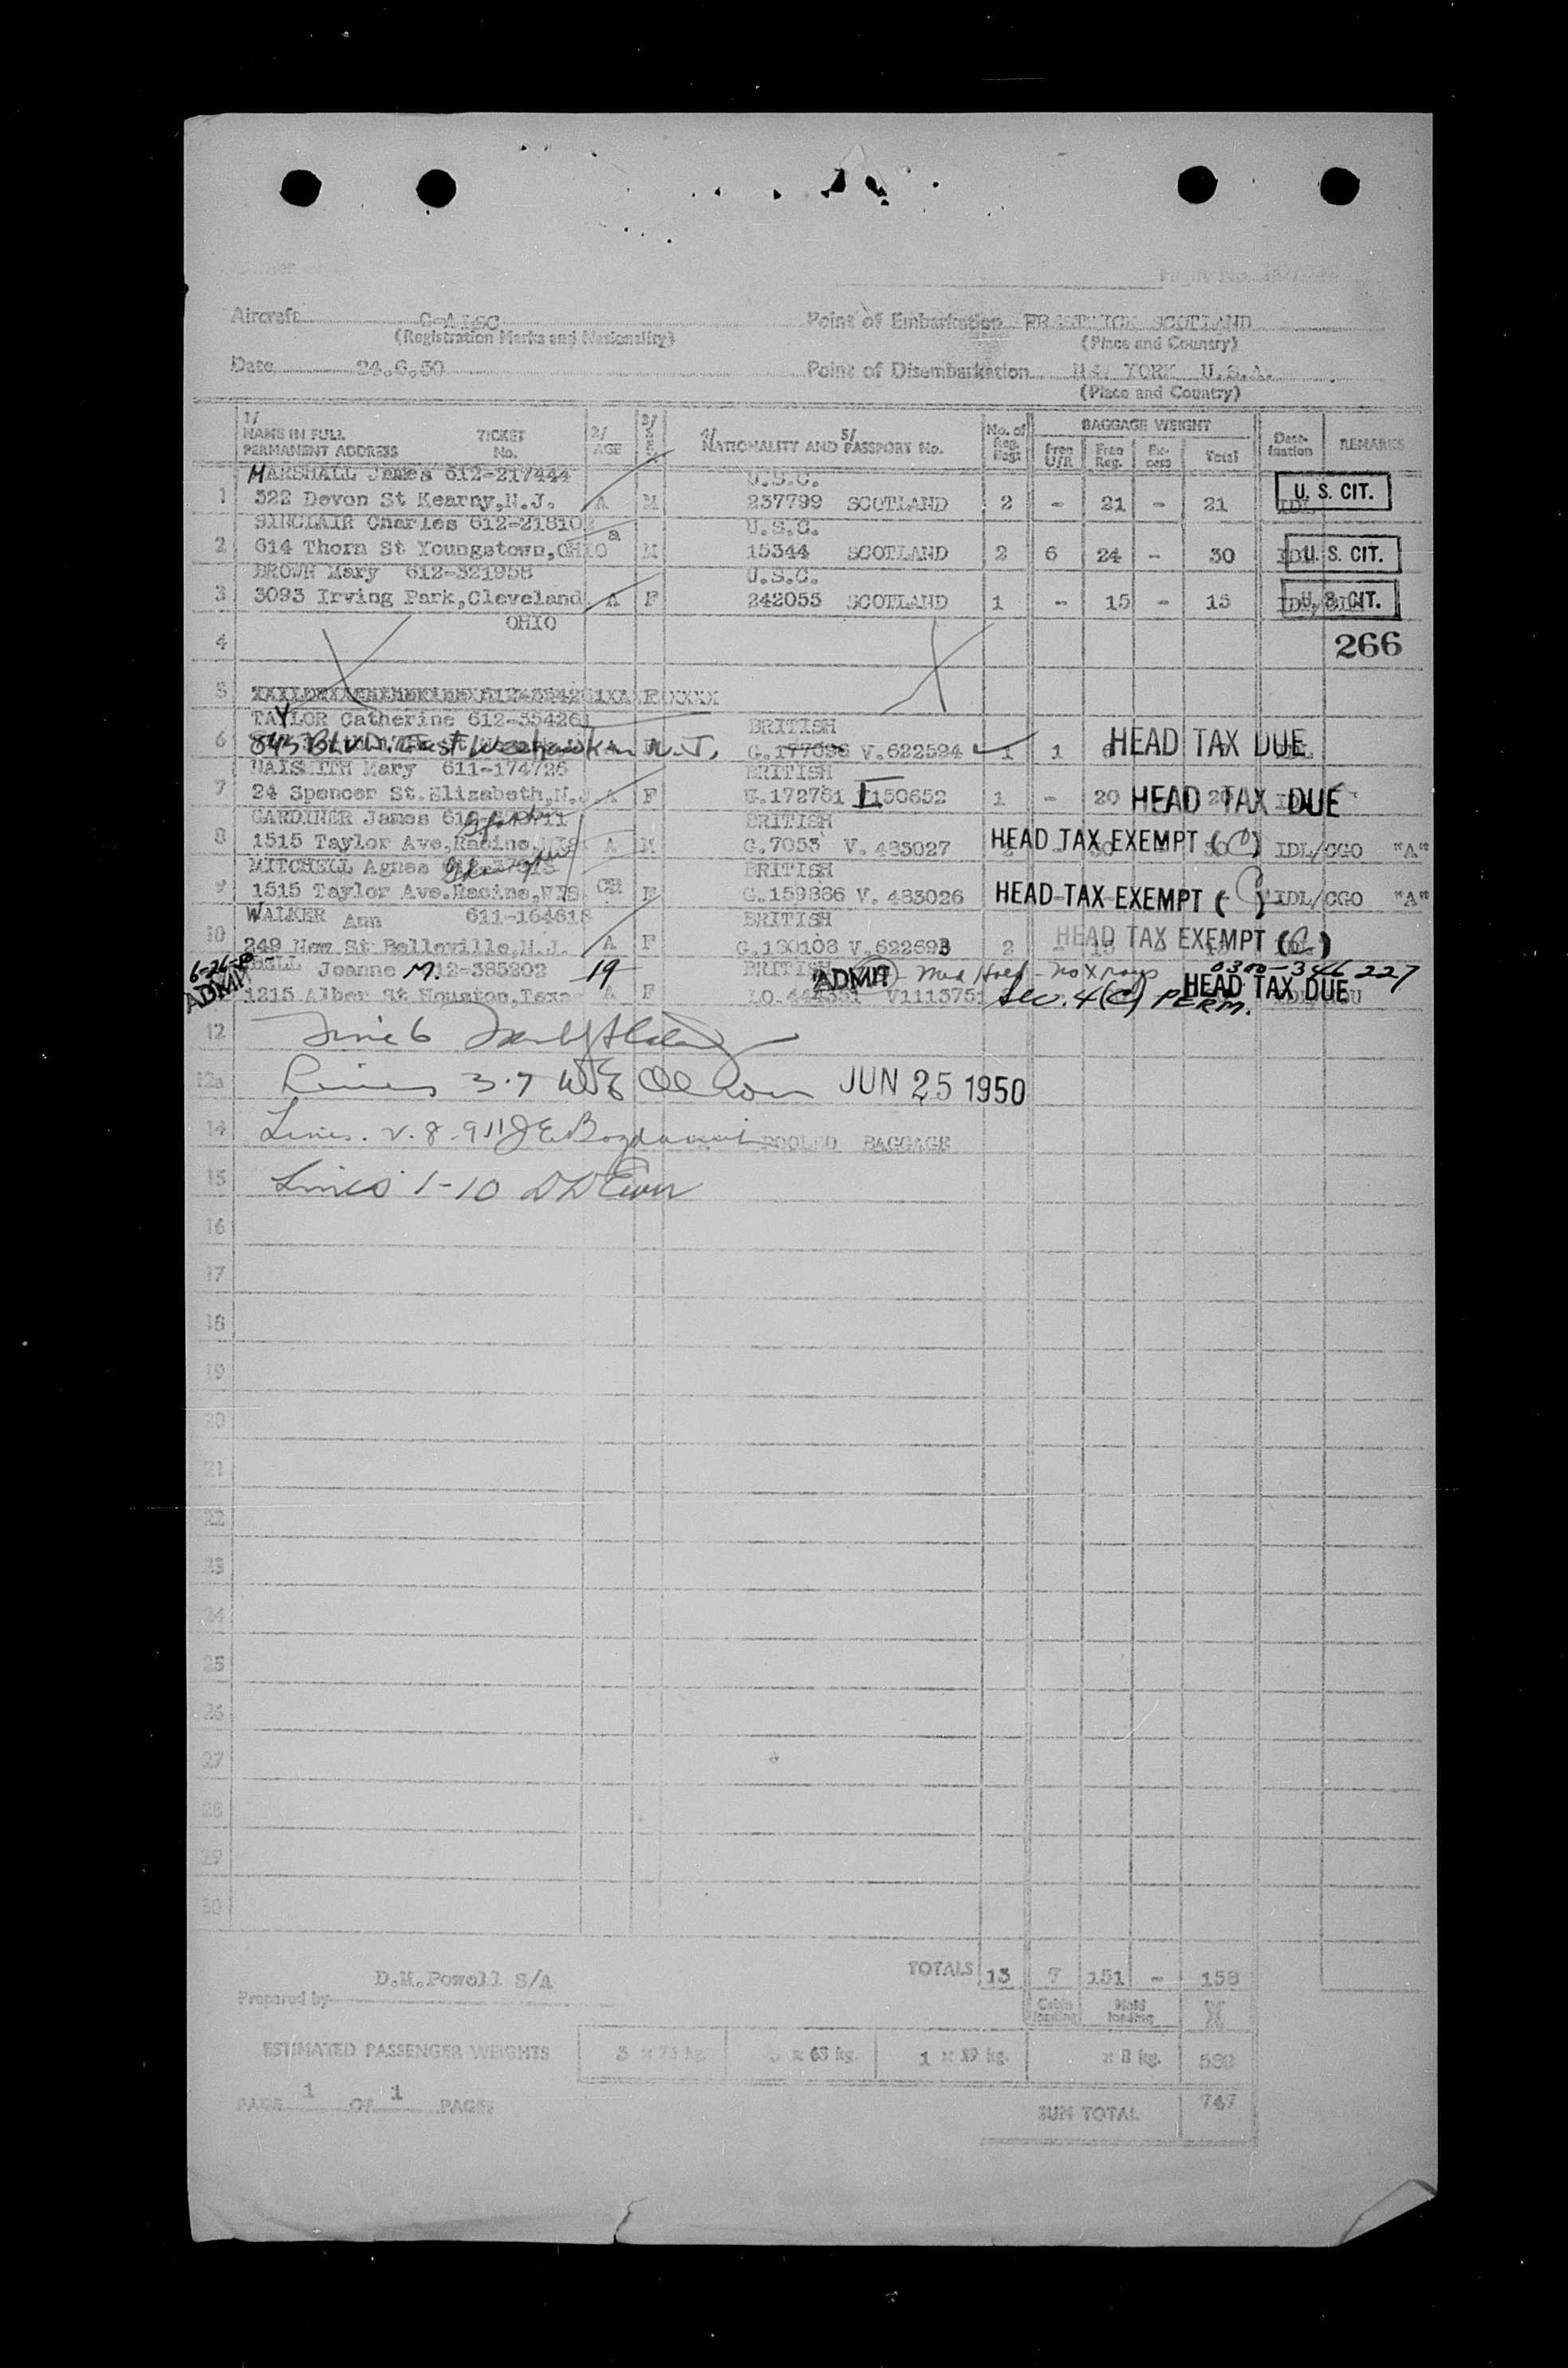 Aircraft
(Registration Marks and Nationality)
Point of Embarkation PRESTWICK SCOTLAND
(Place and Country)
Date 24.6.50
Point of Disembarkation NEW YORK U.S.A.
(Place and Country)
1/ NAME IN FULL PERMANENT ADDRESS TICKET No. 2/ AGE 3/ SEX 4/ NATIONALITY AND 5/ PASSPORT No. No. of Reg. Bags BAGGAGE WEIGHT Free U/R Free Reg. Ex-cess Total Dest-ination REMARKS
MARSHALL James 612-217444 U.S.C.
1 322 Devon St Kearny,N.J. A M 237799 SCOTLAND 2 - 21 - 21 IDL U. S. CIT.
SINCLAIR Charles 612-218102 U.S.C.
2 614 Thorn St Youngstown,OHIO a M 15344 SCOTLAND 2 6 24 - 30 U. S. CIT.
BROWN Mary 612-321958 U.S.C.
3 3093 Irving Park,Cleveland A F 242055 SCOTLAND 1 - 15 - 15 U. S. CIT.
OHIO
4 266
5
TAYLOR Catherine 612-354261 BRITISH
6 843 Blvd. East Weehawken N.J. G.177096 V.622594 1 1 HEAD TAX DUE
NAISMITH Mary 611-174726 BRITISH
7 24 Spencer St.Elizabeth,N.J. A F G.172781 I 150652 1 - 20 HEAD TAX DUE
GARDINER James BRITISH
8 1515 Taylor Ave,Racine,WIS A M G.7053 V. 483027 HEAD TAX EXEMPT (C) IDL/CGO "A"
MITCHELL Agnes BRITISH
9 1515 Taylor Ave.Racine,WIS CH F G.159886 V. 483026 HEAD TAX EXEMPT (C) IDL/CGO "A"
WALKER Ann 611-164618 BRITISH
10 249 New St Belleville,N.J. A F G.180108 V.622693 2 HEAD TAX EXEMPT (C)
6-26-50 BELL Jeanne M. 612-385202 19 BRITISH ADMIT Med Hold - no X rays 0300-346227
ADMIT 1215 Alber St Houston,Texas A F V111375 Sec. 4(C) PERM. HEAD TAX DUE
12 Line 6
12a Lines 3-7 JUN 25 1950
14 Lines POOLED BAGGAGE
15 Lines 1-10
16
17
18
19
20
21
22
23
24
25
26
27
28
29
30
TOTALS 13 7 151 - 158
Prepared by D.M.Powell S/A
Cabin loading Hold loading
ESTIMATED PASSENGER WEIGHTS 3 x 75 kg. x 65 kg. 1 x 39 kg. x 8 kg.
PAGE 1 OF 1 PAGES
SUM TOTAL 747